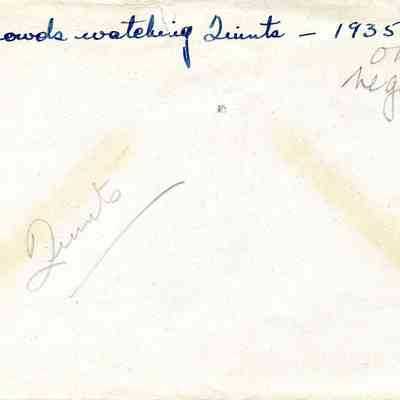 owds watching Quints - 1935
on
neg
Quints